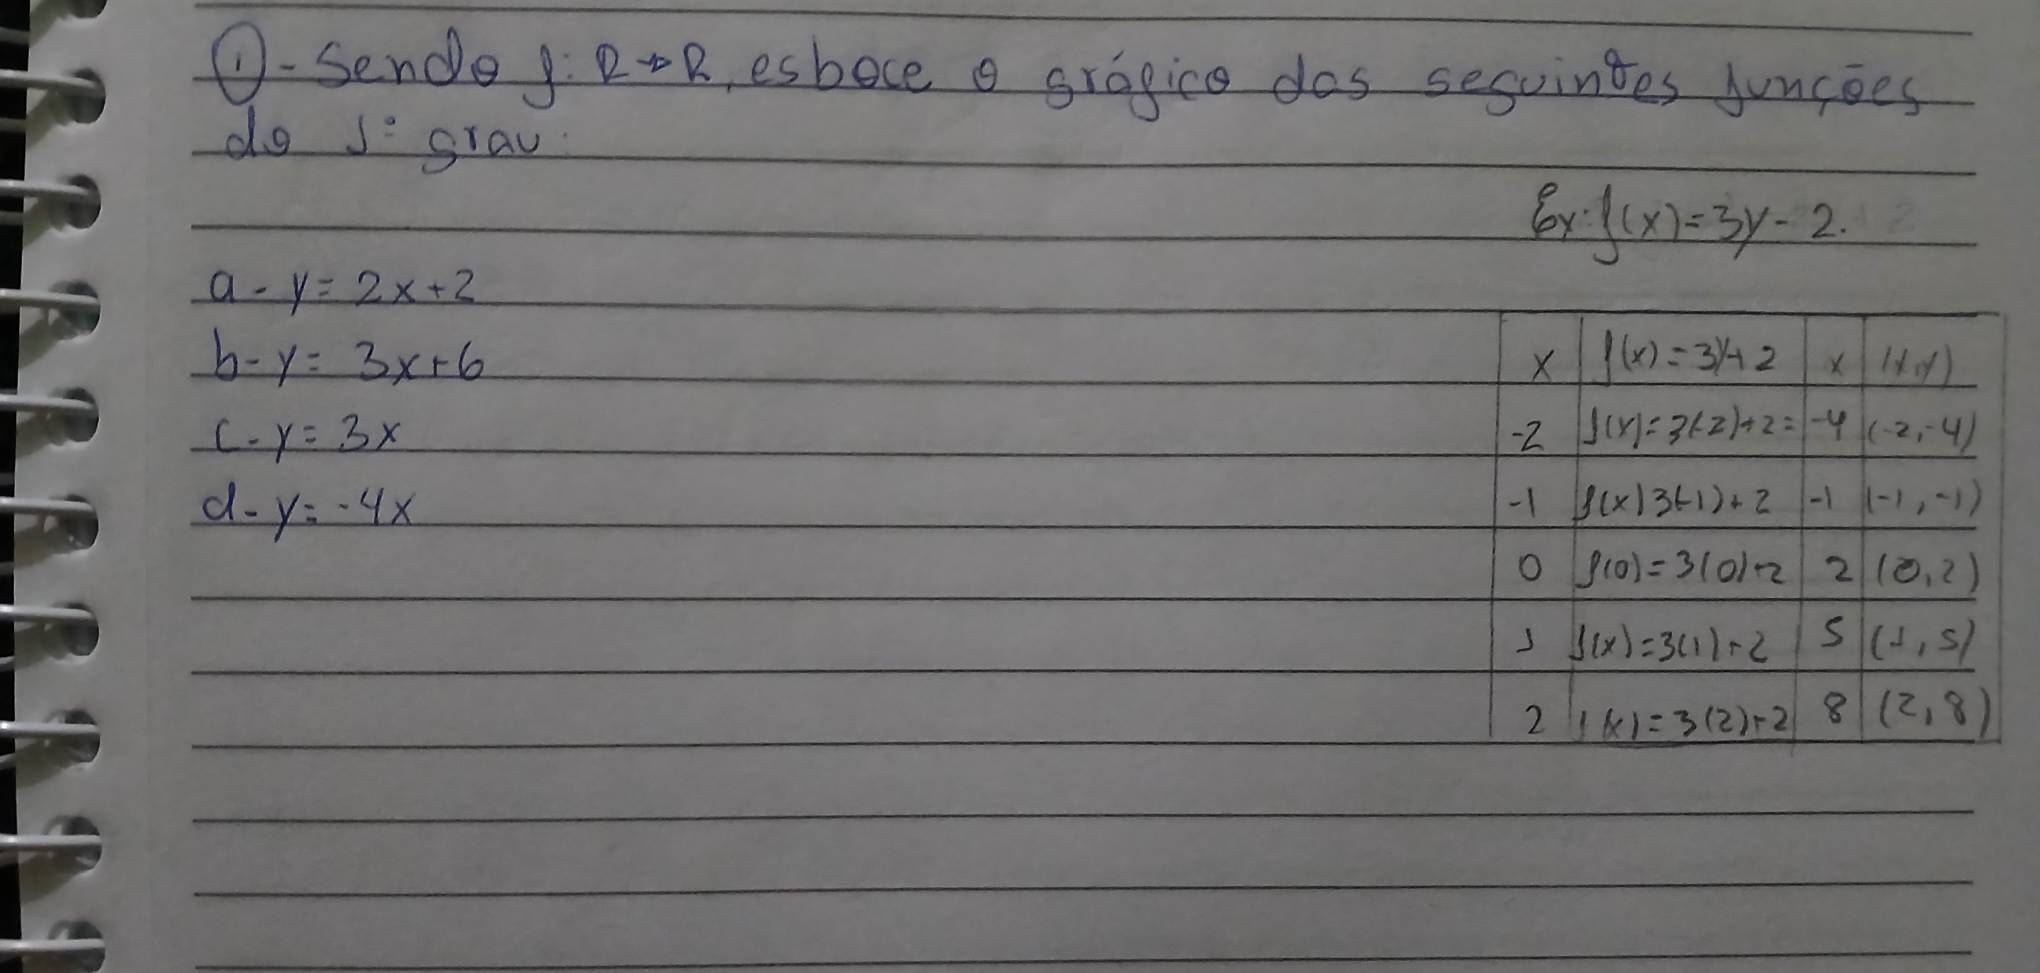 ① - Sendo f: R→R, esboce o gráfico das seguintes funções
do 1º grau:
Ex: f(x)=3y-2.
a - y= 2x+2
b- y= 3x+6
c - y= 3x
d - y= -4x
x f(x)=3y+2 x (x,y)
-2 f(x)=3(-2)+2= -4 (-2,-4)
-1 f(x)3(-1)+2 -1 (-1,-1)
0 f(0)=3(0)+2 2 (0,2)
1 f(x)=3(1)+2 5 (1,5)
2 f(x)=3(2)+2 8 (2,8)